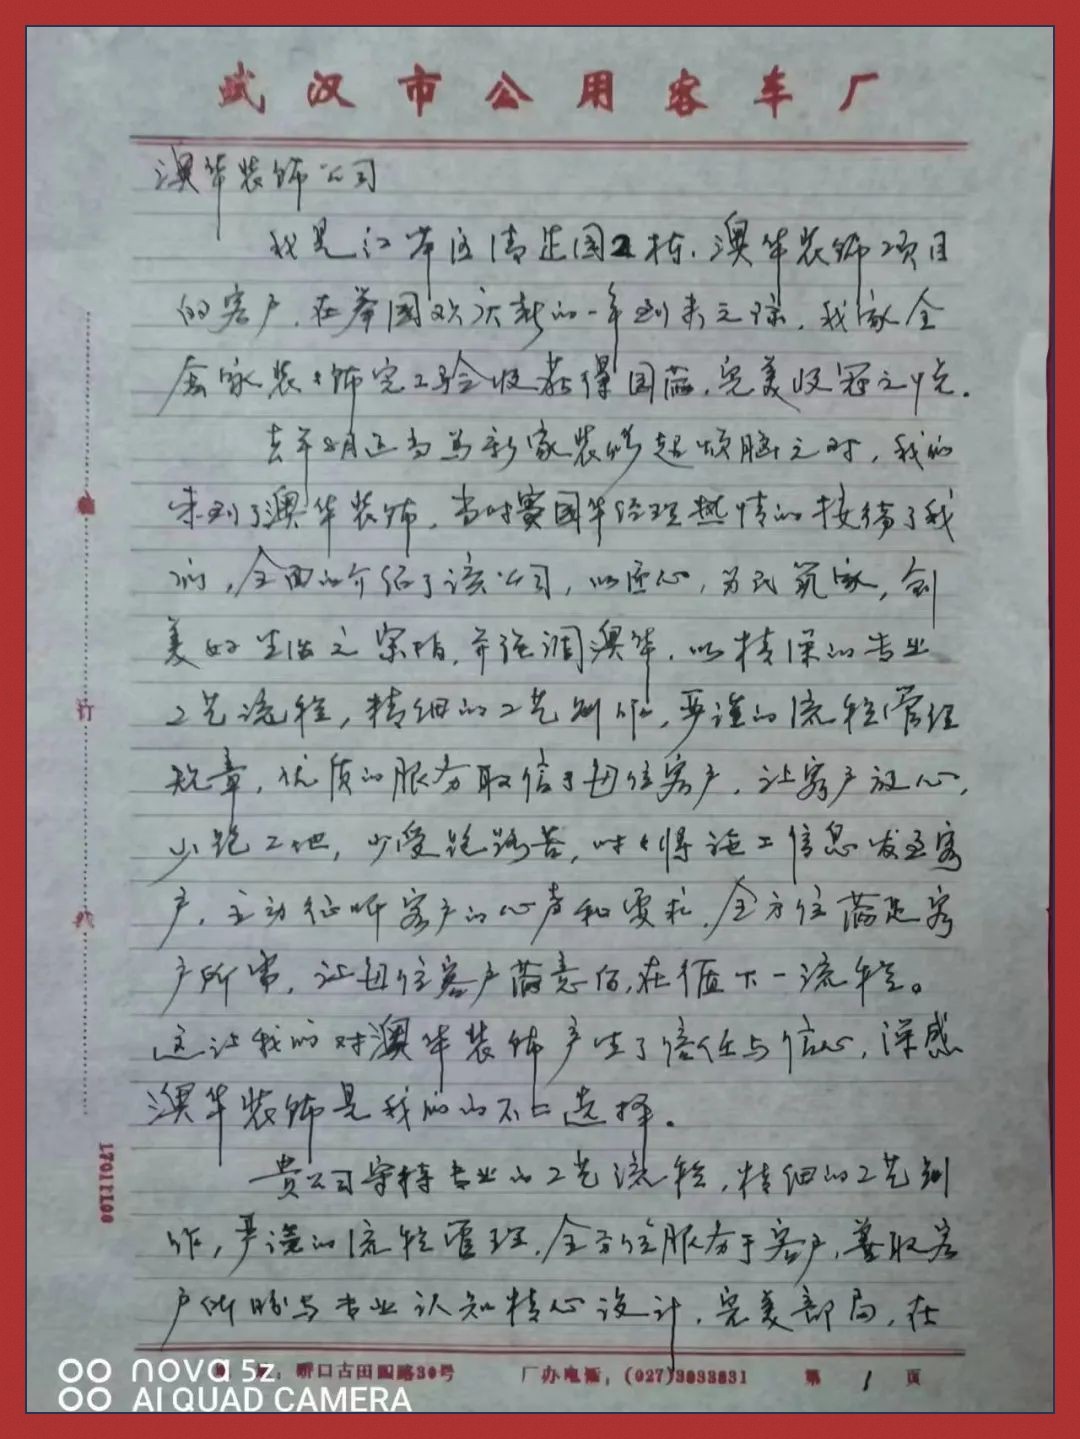 武汉市公用客车厂
澳华装饰公司
我是江岸区清 园2栋,澳华装饰项目
的客户,在举国欢庆新的一年到来之际,我家全
家装饰完工验收获得圆满,完美收冠之悦。
去年8月正当为新家装修起烦脑之时,我们
来到了澳华装饰,当时 国华经理热情的接待了我
们,全面的介绍了该公司,以匠心,为民筑家,创
美好生活之宗旨,并强调澳华,以精深的专业
工艺流程,精细的工艺制作,严谨的流程管理
规章,优质的服务取信于每位客户,让客户放心,
少跑工地,少受跑路苦,时时将施工信息发至客
户,主动征听客户的心声和要求,全方位满足客
户所需,让每位客户满意后,在值下一流程。
这让我们对澳华装饰产生了信任与信心,深感
澳华装饰是我们的不二选择。
贵公司守持专业的工艺流程,精细的工艺制
作,严谨的流程管理,全方位服务于客户,善取客
户所 与专业认知精心设计,完美部局,在
订
线
17011100
桥口古田四路30号
厂办电话:(027)3833831
第1页
nova 5z
AI QUAD CAMERA